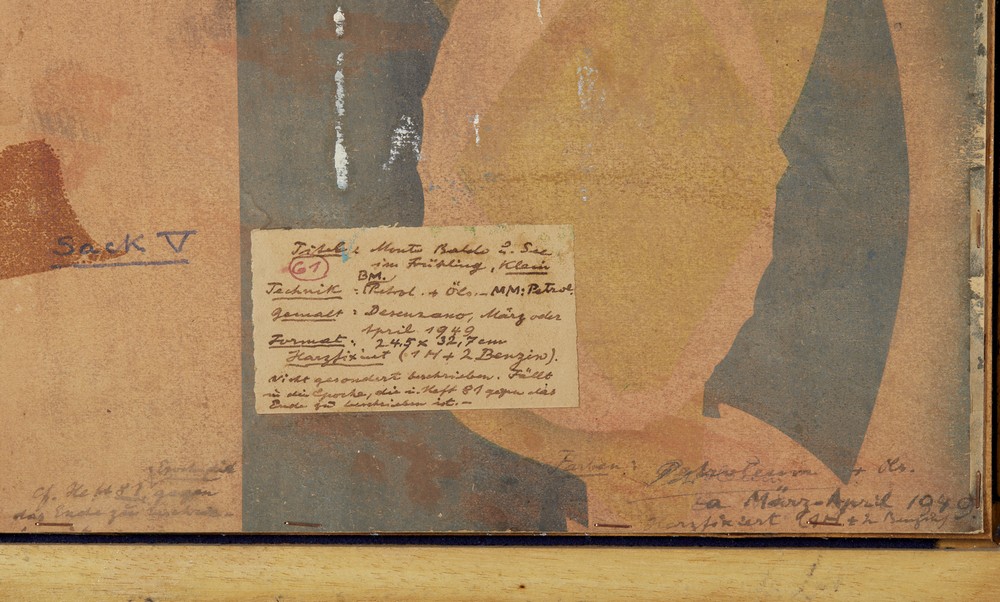 Sack V
Titel: Monte Baldo u. See
im Frühling, Klein
61 BM.
Technik: Petrol. + Öls. - MM: Petrol.
gemalt: Desenzano, März oder
April 1949
Format: 24,5 x 32,7 cm
Harzfixiert (1 H + 2 Benzin).
Nicht gesondert beschrieben. Fällt
in die Epoche, die i. Heft 81 gegen das
Ende zu beschrieben ist. -
Cf. Heft 81, gegen
das Ende zu
Farben: Petroleum + Öls.
März-April 1949
Harzfixiert (1 H + 2 Benzin)